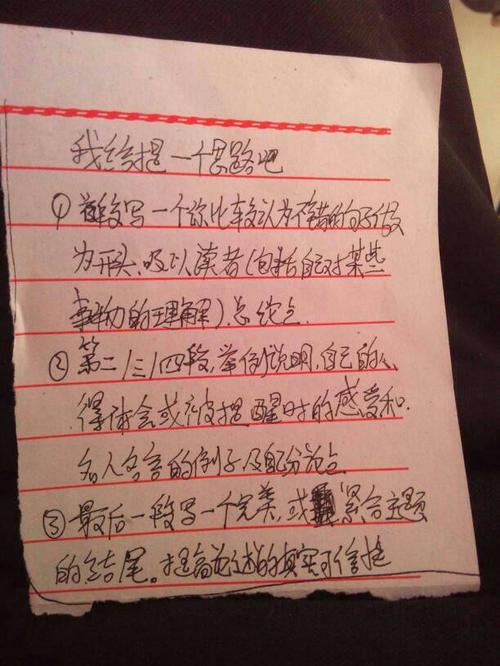 我给提一个思路吧
①首段写一个你比较认为不错的句子做
为开头,吸以读者(包括自己对某些
事物的理解)总论点.
②第二/三/四段,举例说明,自己的心
得体会或被提醒时的感受和.
名人名言的例子及分论点
③最后一段写一个完美,或紧合主题
的结尾。提高论述的真实可信性